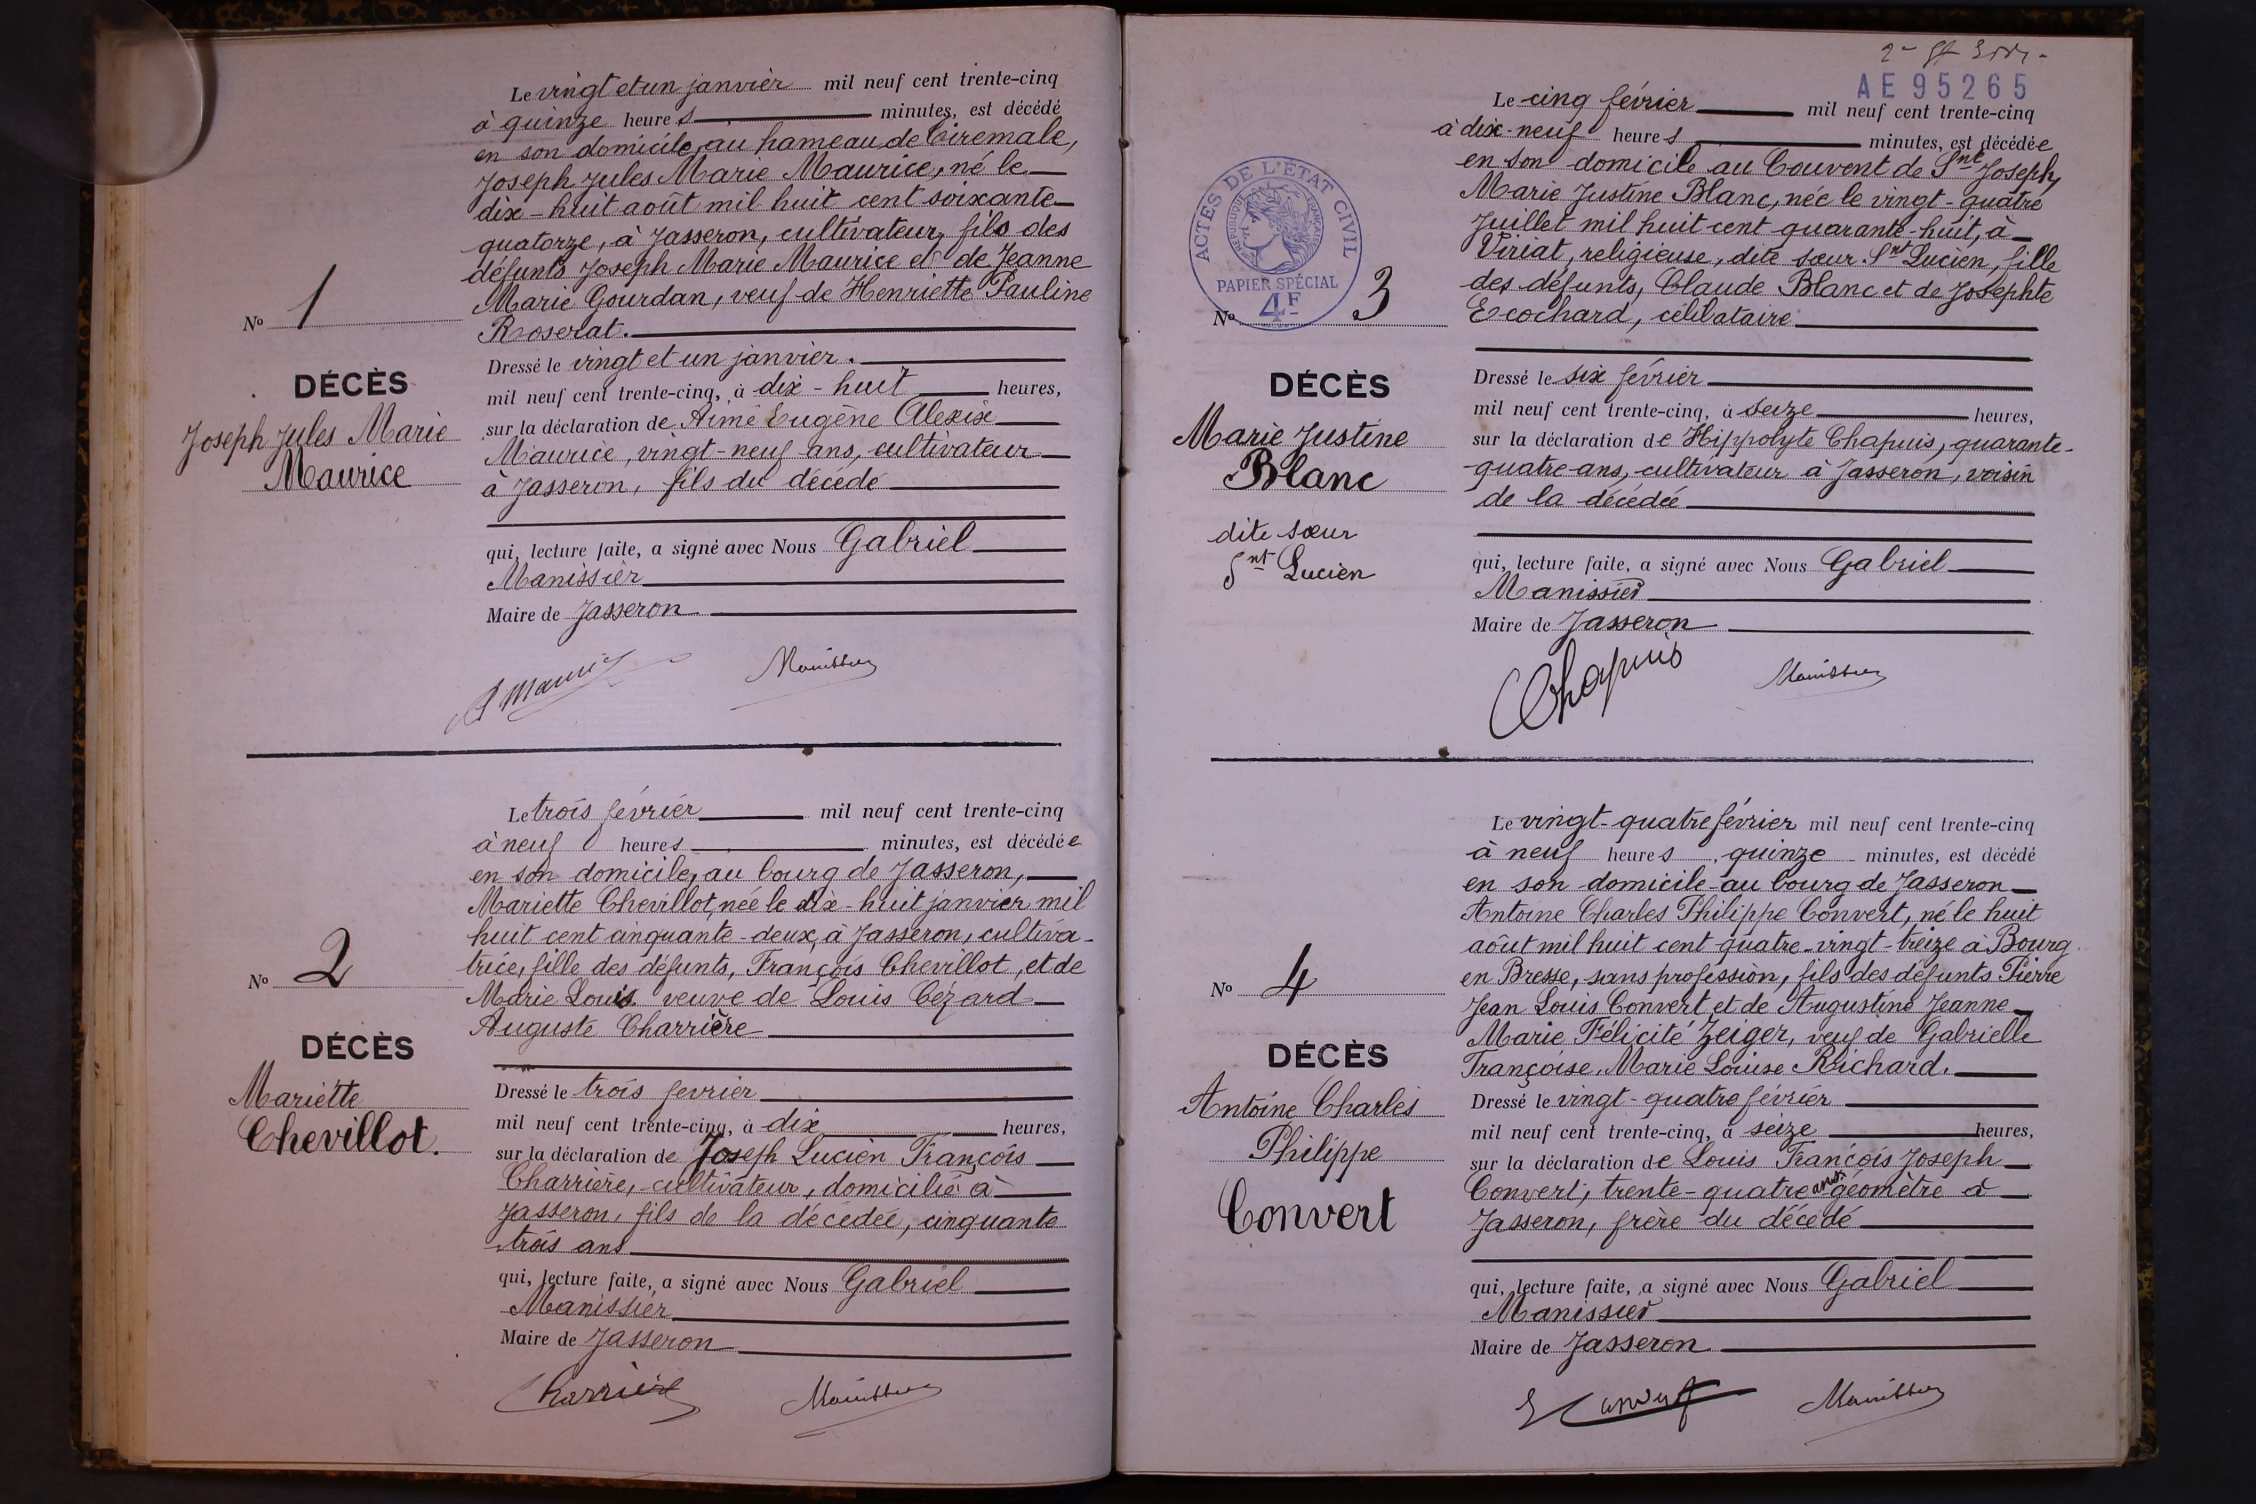 Le vingt et un janvier mil neuf cent trente-cinq
à quinze heures minutes, est décédé
en son domicile, au hameau de Tiremale,
Joseph Jules Marie Maurice, né le
dix-huit août mil huit cent soixante
quatorze, à Jasseron, cultivateur, fils des
défunts Joseph Marie Maurice et de Jeanne
Marie Gourdan, veuf de Henriette Pauline
Roserat.
Nº 1
DÉCÈS
Joseph Jules Marie
Maurice
Dressé le vingt et un janvier.
mil neuf cent trente-cinq, à dix-huit heures,
sur la déclaration de Aimé Eugène Alexix
Maurice, vingt-neuf ans, cultivateur
à Jasseron, fils du décédé
qui, lecture faite, a signé avec Nous Gabriel
Manissier
Maire de Jasseron
Manissier
Le trois février mil neuf cent trente-cinq
à neuf heures minutes, est décédée
en son domicile, au bourg de Jasseron,
Mariette Chevillot, née le dix-huit janvier mil
huit cent cinquante-deux, à Jasseron, cultiva-
trice, fille des défunts, François Chevillot, et de
Marie Louis veuve de Louis Cézard
Auguste Charrière
Nº 2
DÉCÈS
Mariette
Chevillot.
Dressé le trois fevrier
mil neuf cent trente-cinq, à dix heures,
sur la déclaration de Joseph Lucien François
Charrière, cultivateur, domicilié à
Jasseron, fils de la décédée, cinquante
trois ans
qui, lecture faite, a signé avec Nous Gabriel
Manissier
Maire de Jasseron
Charrière Manissier
AE 95265
Le cinq février mil neuf cent trente-cinq
à dix-neuf heures minutes, est décédée
en son domicile au Couvent de Snt Joseph,
Marie Justine Blanc, née le vingt-quatre
Juillet mil huit cent quarante-huit, à
Viriat, religieuse, dite sœur Snt Lucien, fille
des défunts, Claude Blanc et de Josephte
Ecochard, célibataire
ACTES DE L'ÉTAT CIVIL
RÉPUBLIQUE FRANÇAISE
PAPIER SPÉCIAL
4F
Nº 3
DÉCÈS
Marie Justine
Blanc
dite sœur
Snt Lucien
Dressé le six février
mil neuf cent trente-cinq, à seize heures,
sur la déclaration de Hippolyte Chapuis, quarante-
quatre ans, cultivateur à Jasseron, voisin
de la décédée
qui, lecture faite, a signé avec Nous Gabriel
Manissier
Maire de Jasseron
Chapuis Manissier
Le vingt-quatre février mil neuf cent trente-cinq
à neuf heures quinze minutes, est décédé
en son domicile au bourg de Jasseron
Antoine Charles Philippe Convert, né le huit
aôut mil huit cent quatre-vingt-treize à Bourg
en Bresse, sans profession, fils des défunts Pierre
Jean Louis Convert et de Augustine Jeanne
Marie Félicité Zeiger, veuf de Gabrielle
Françoise, Marie Louise Richard.
Nº 4
DÉCÈS
Antoine Charles
Philippe
Convert
Dressé le vingt-quatre février
mil neuf cent trente-cinq, à seize heures,
sur la déclaration de Louis François Joseph
Convert, trente-quatre ans géomètre à
Jasseron, frère du décédé
qui, lecture faite, a signé avec Nous Gabriel
Manissier
Maire de Jasseron
Convert Manissier